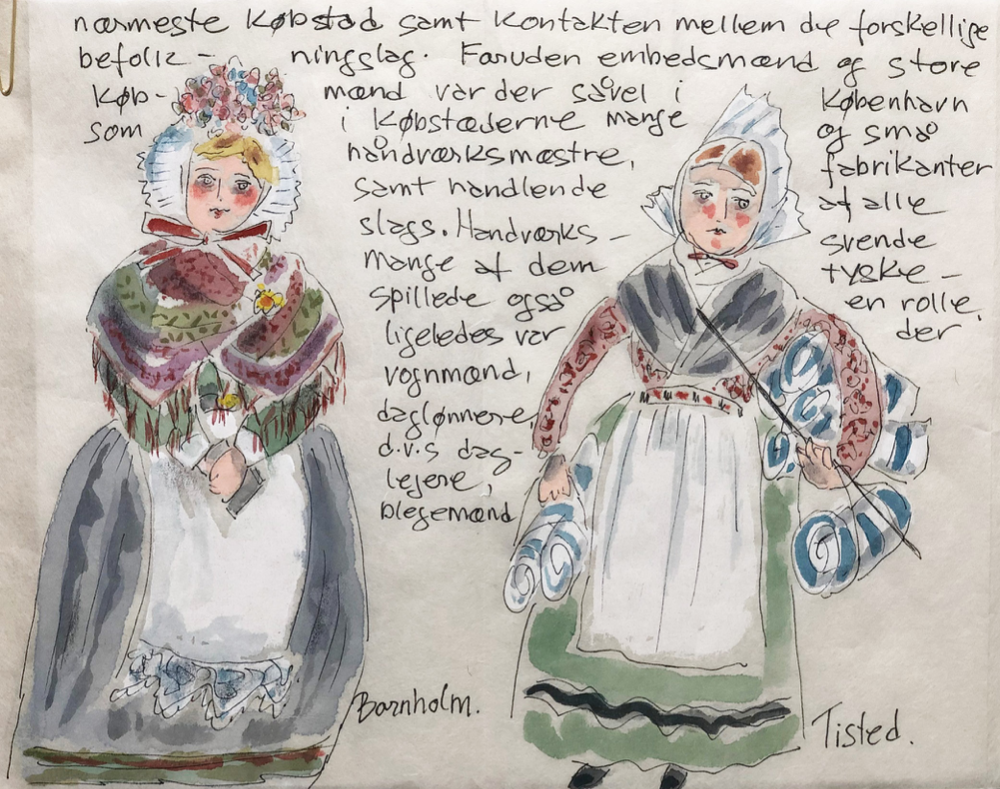 nærmeste Købstad samt kontakten mellem de forskellige
befolk- ningslag. Foruden embedsmænd og store
Køb- mænd var der såvel i København
som i Købstæderne mange og små
håndværksmæstre, fabrikanter
samt handlende af alle
slags. Handværks- svende
mange af dem tyske-
spillede også en rolle,
ligeledes var der
vognmænd,
daglønnere,
d.v.s dag-
lejere,
blegemænd
Bornholm.
Tisted.